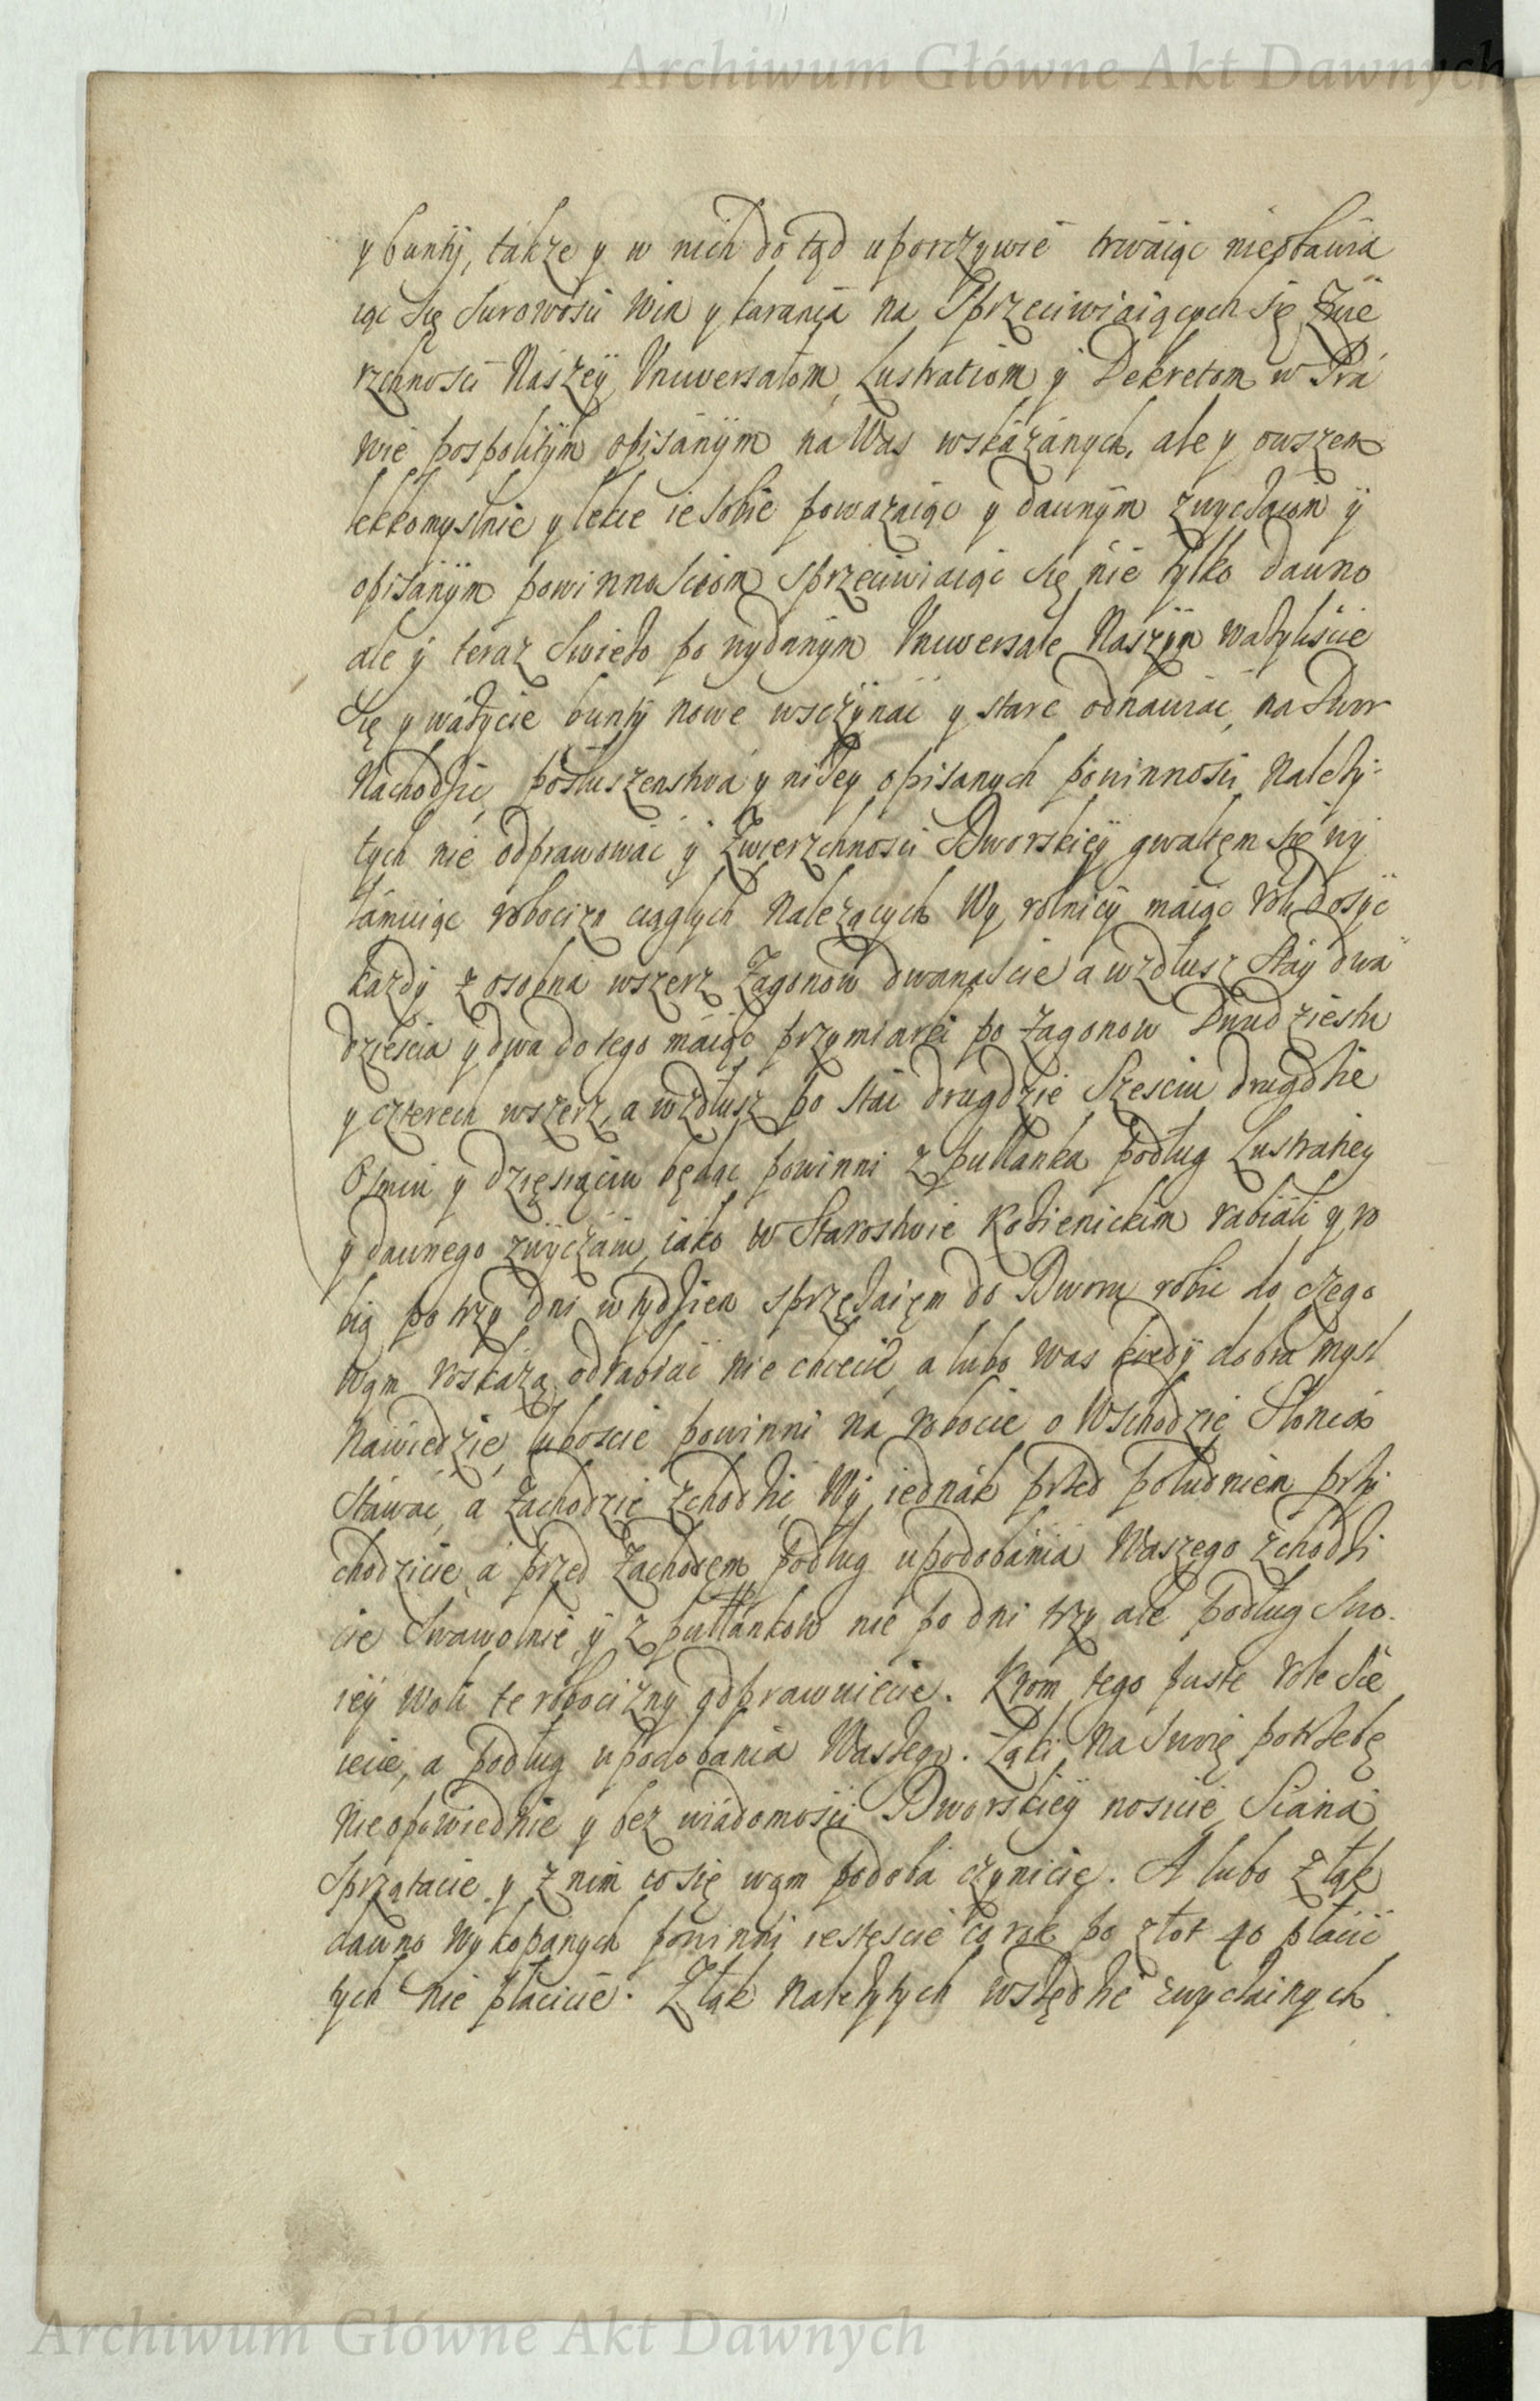 Archiwum Główne Akt Dawnych
y bunty, także y w nich do tąd uporczywie trwáiąc nieobawia
iąc Się Surowości Win y karania na Sprzeciwiaiących się Zwie
rzchności Nászey Vniwersałom, Lustratiom y Dekretom w Prá
wie pospolitym opisánym na Was wskázánych, ale y owszem
lekkomyslnie y lekce ie sobie poważaiąc y dawnym zwyczaiom y
opisánym powinnosciom sprzeciwiaiąc się nie tylko dawno
ale y teraz Swieżo po wydanym Vniwersale Naszym ważyliście
Się y wáżycie bunty nowe wsczynać y stare odnawiać, na Dwor
Náchodzić, posłuszenstwa y niżey opisanych powinności Należy-
tych nie odprawować y Zwierzchności Dworskiey gwałtem się wy
łámuiąc robocizn ciągłych Należących Wy rolnicy máiąc roli dosyć
każdy z osobna wszerz Zagonow dwanaście a wzdłusz Stáy dwa
dzieścia y dwa do tego máiąc przymiarki po Zagonow Dwudziestu
y czterech wszerz, a wzdłusz po Stai drugdzie Sześciu drugdzie
Osmiu y dziesiąciu będąc powinni z pułłanka podług Lustratiey
y dawnego zwyczáiu, iáko w Starostwie Kozienickim rabiáli y ro
bią po trzy dni w tydzien sprzężaięm do Dworu robić do czego
Wąm roskażą odrabiáć nie chcecie, a lubo was kiedy dobra mysl
Náwiedzie, luboscie powinni ná robocie o Wschodzie Słońca
Stáwać, a Zachodzie Zchodzić, Wy iednák przed południem przy
chodzicie, a przed Zachodem podług upodobánia Waszego zchodzi
cie Swawolnie, y z pułłánkow nie po dni trzy ale podług Swo-
iey woli te robocizny odprawuiecie. Krom tego puste role Sie
iecie, a podług upodobania Waszego. Łąki Na Swoię potrzebę
Nieopowiednie y bez wiádomości Dworskiey kosicie, Siana
Sprzątacie y z nim co się wąm podoba czynicie. A lubo z łąk
dawno Wykopanych powinni iestescie co rok po złot 40 płacić
tych nie płacicie. Z łąk Należytych wszędzie zwyczainych
Archiwum Główne Akt Dawnych